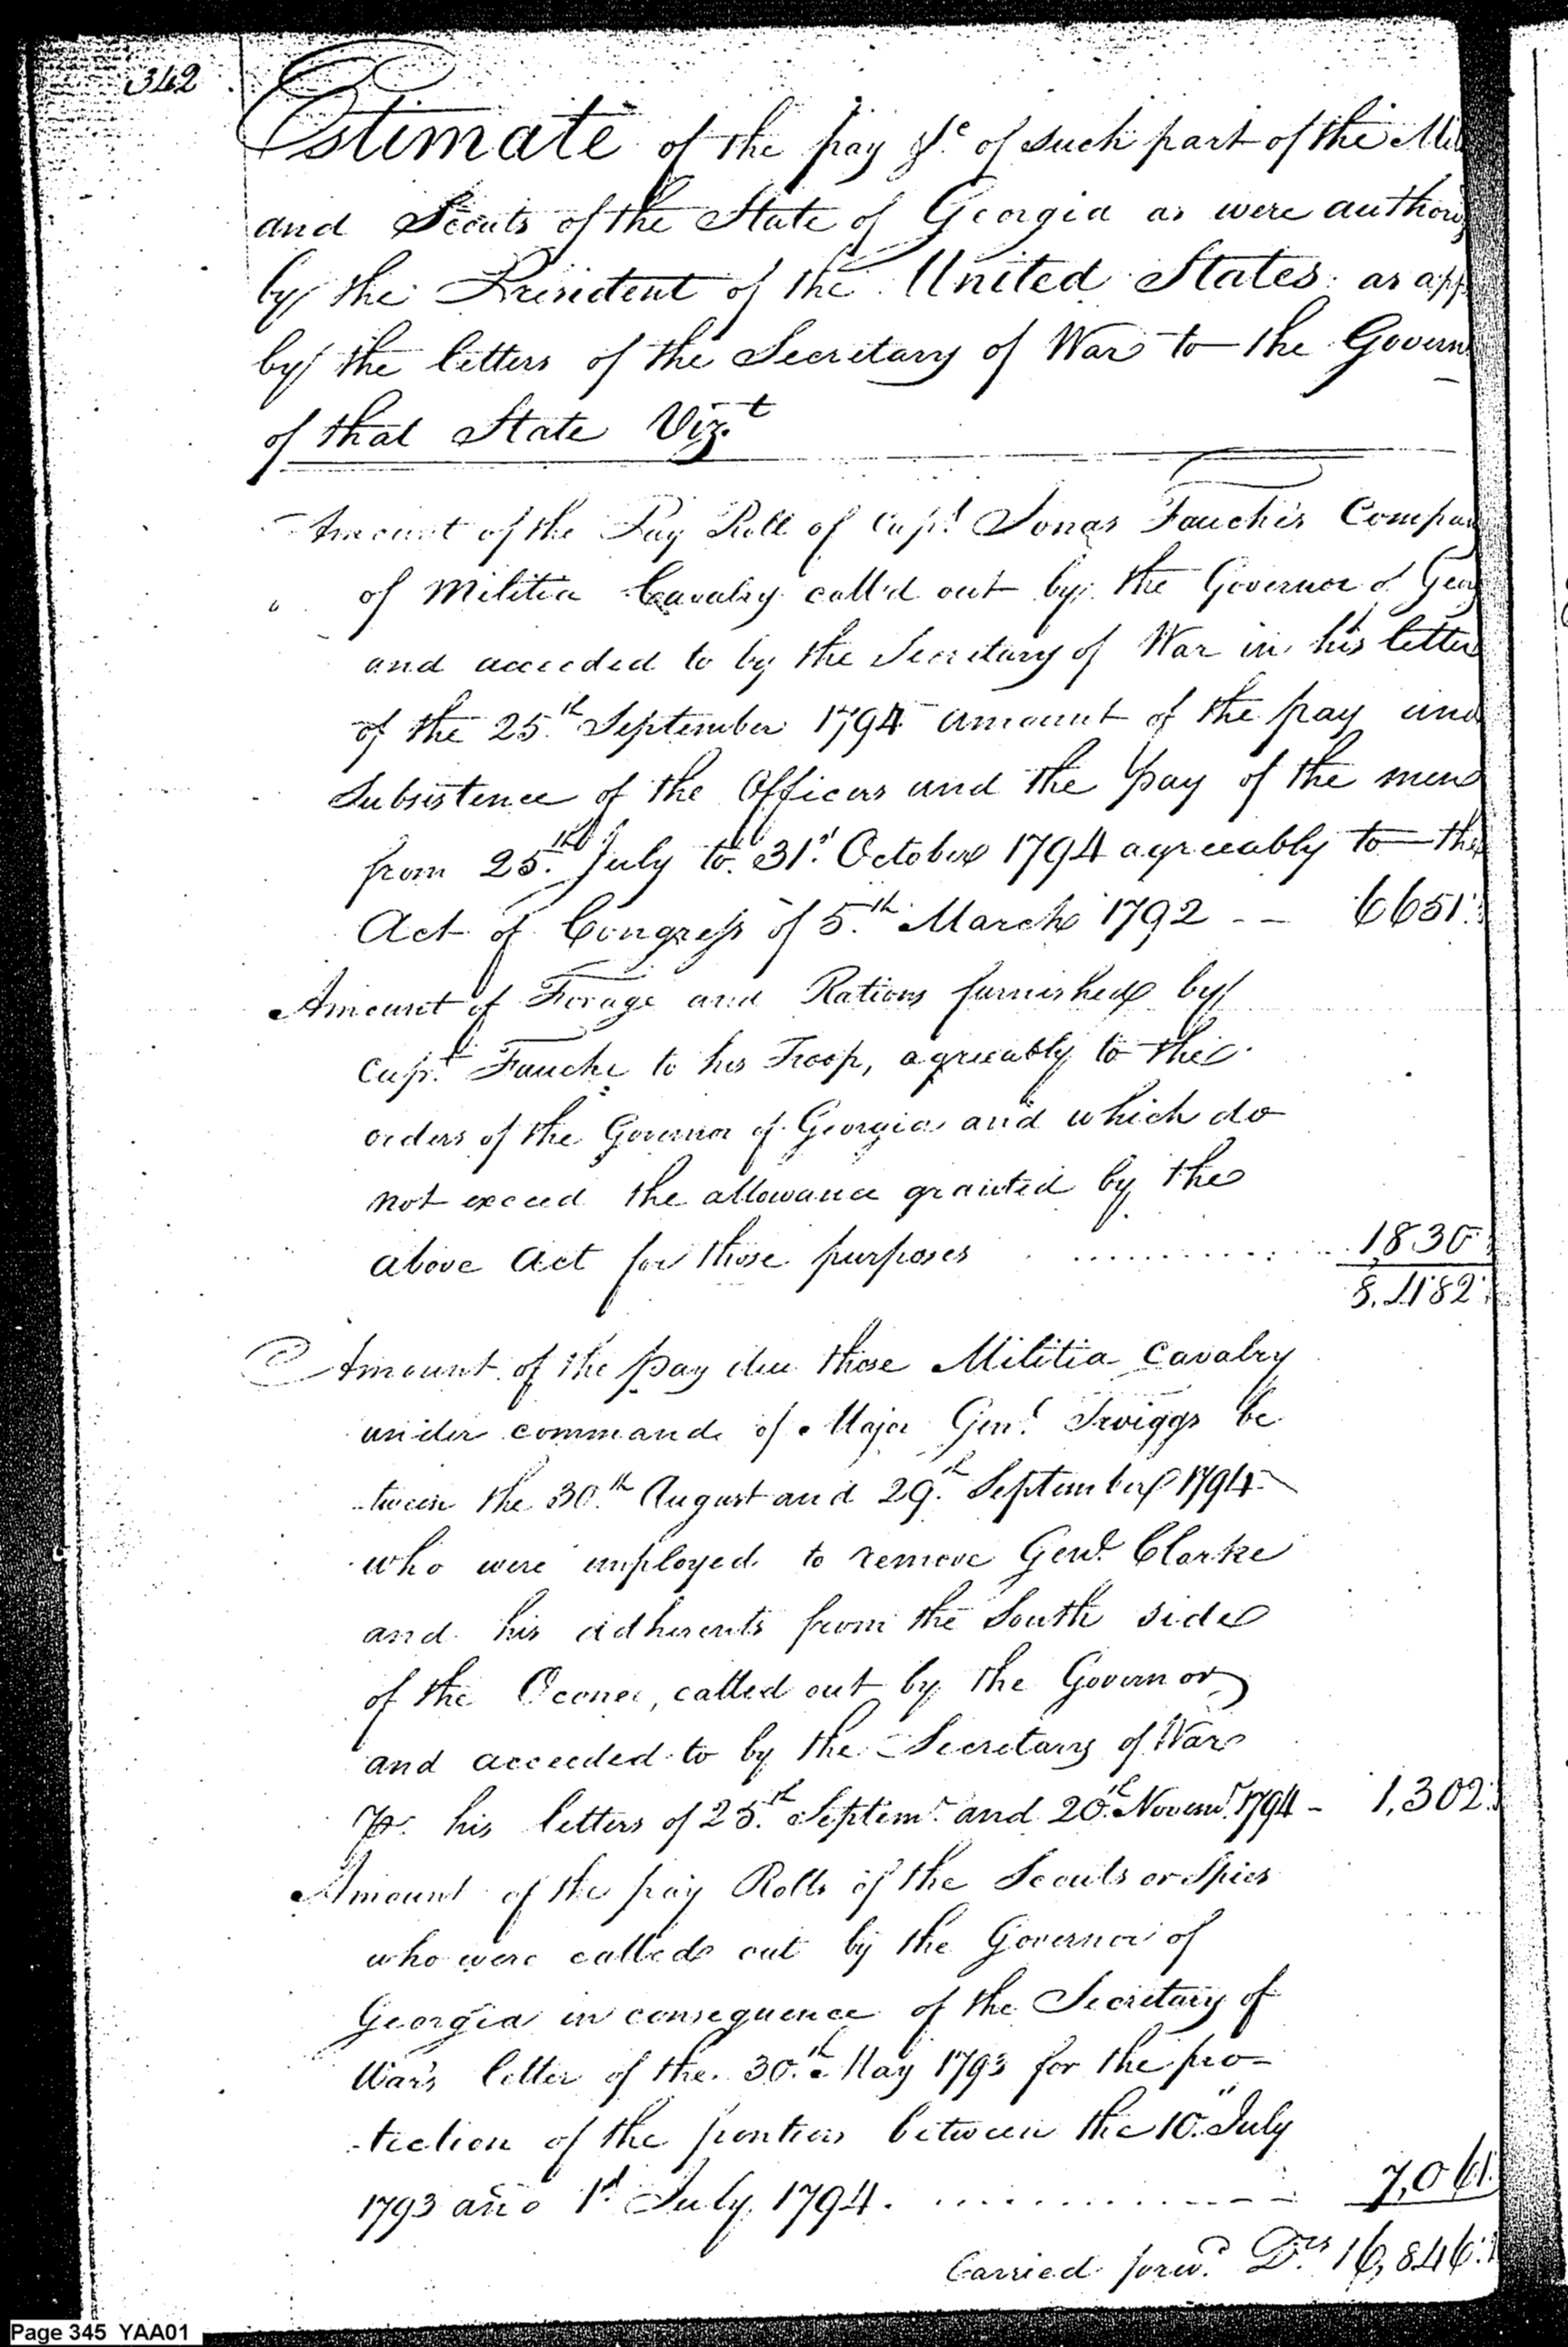 342
Estimate of the pay &c. of such part of the Mil
and Scouts of the State of Georgia as were authoriz
by the President of the United States as app
by the letters of the Secretary of War to the Govern
of that State Viz.t
Amount of the Pay Roll of Capt. Jonas Fauche's Compan
of Militia Cavalry call'd out by the Governor of Geo
and acceeded to by the Secretary of War in his letter
of the 25.th September 1794 amount of the pay and
Subsistence of the Officers and the pay of the men
from 25.th July to 31.st October 1794 agreeably to the
Act of Congress of 5.th March 1792 -- 6651.
Amount of Forage and Rations furnished by
Capt. Fauche to his Troop, agreeably to the
orders of the Governor of Georgia and which do
not exceed the allowance granted by the
above Act for those purposes .......... 1,830
8,482
Amount of the pay due those Militia Cavalry
under command of Major Genl. Twiggs be
-tween the 30.th August and 29.th September 1794
who were employed to remove Genl. Clarke
and his adherents from the South side
of the Oconee, called out by the Governor
and acceeded to by the Secretary of War
Pr. his letters of 25.th Septemr. and 20.th Novemr. 1794 - 1,302.
Amount of the pay Rolls of the Scouts or Spies
who were called out by the Governor of
Georgia in consequence of the Secretary of
War's letter of the 30.th May 1793 for the pro-
-tection of the frontiers between the 10.th July
1793 and 1st. July 1794. .......... 7,061.
Carried forwd. Drs. 16,846.
Page 345 YAA01